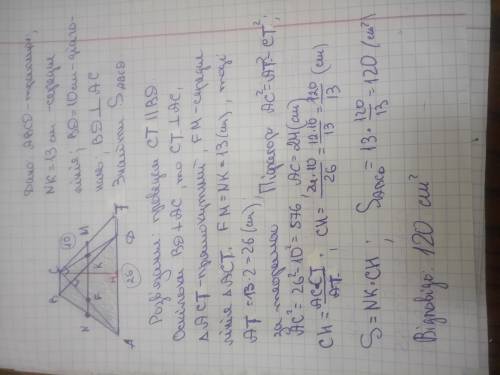 Дано: ABCD-трапеція,
NK=13 см - середня
лінія; BD=10см-діаго-
наль, BD⊥AC
Знайти S ABCD
B C 10 N F K M A 26 D T H
Розв'язання: проведем CT∥BD
Оскільки BD⊥AC, то CT⊥AC,
ΔACT-прямокутний, FM-середня
лінія ΔACT. FM=NK=13(см), тоді
AT=13·2=26(см),
за теоремою Піфагора AC²=AT²-CT²,
AC²=26²-10²=576, AC=24(см)
CH=AC·CT/AT; CH=24·10/26=12·10/13=120/13 (см)
S=NK·CH; S ABCD=13·120/13=120 (см²)
Відповідь: 120 см²